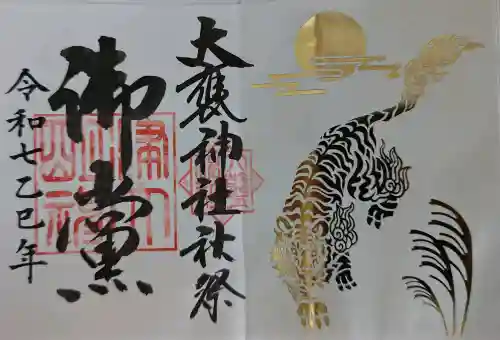 大甕神社秋祭
御黨
令和七乙巳年